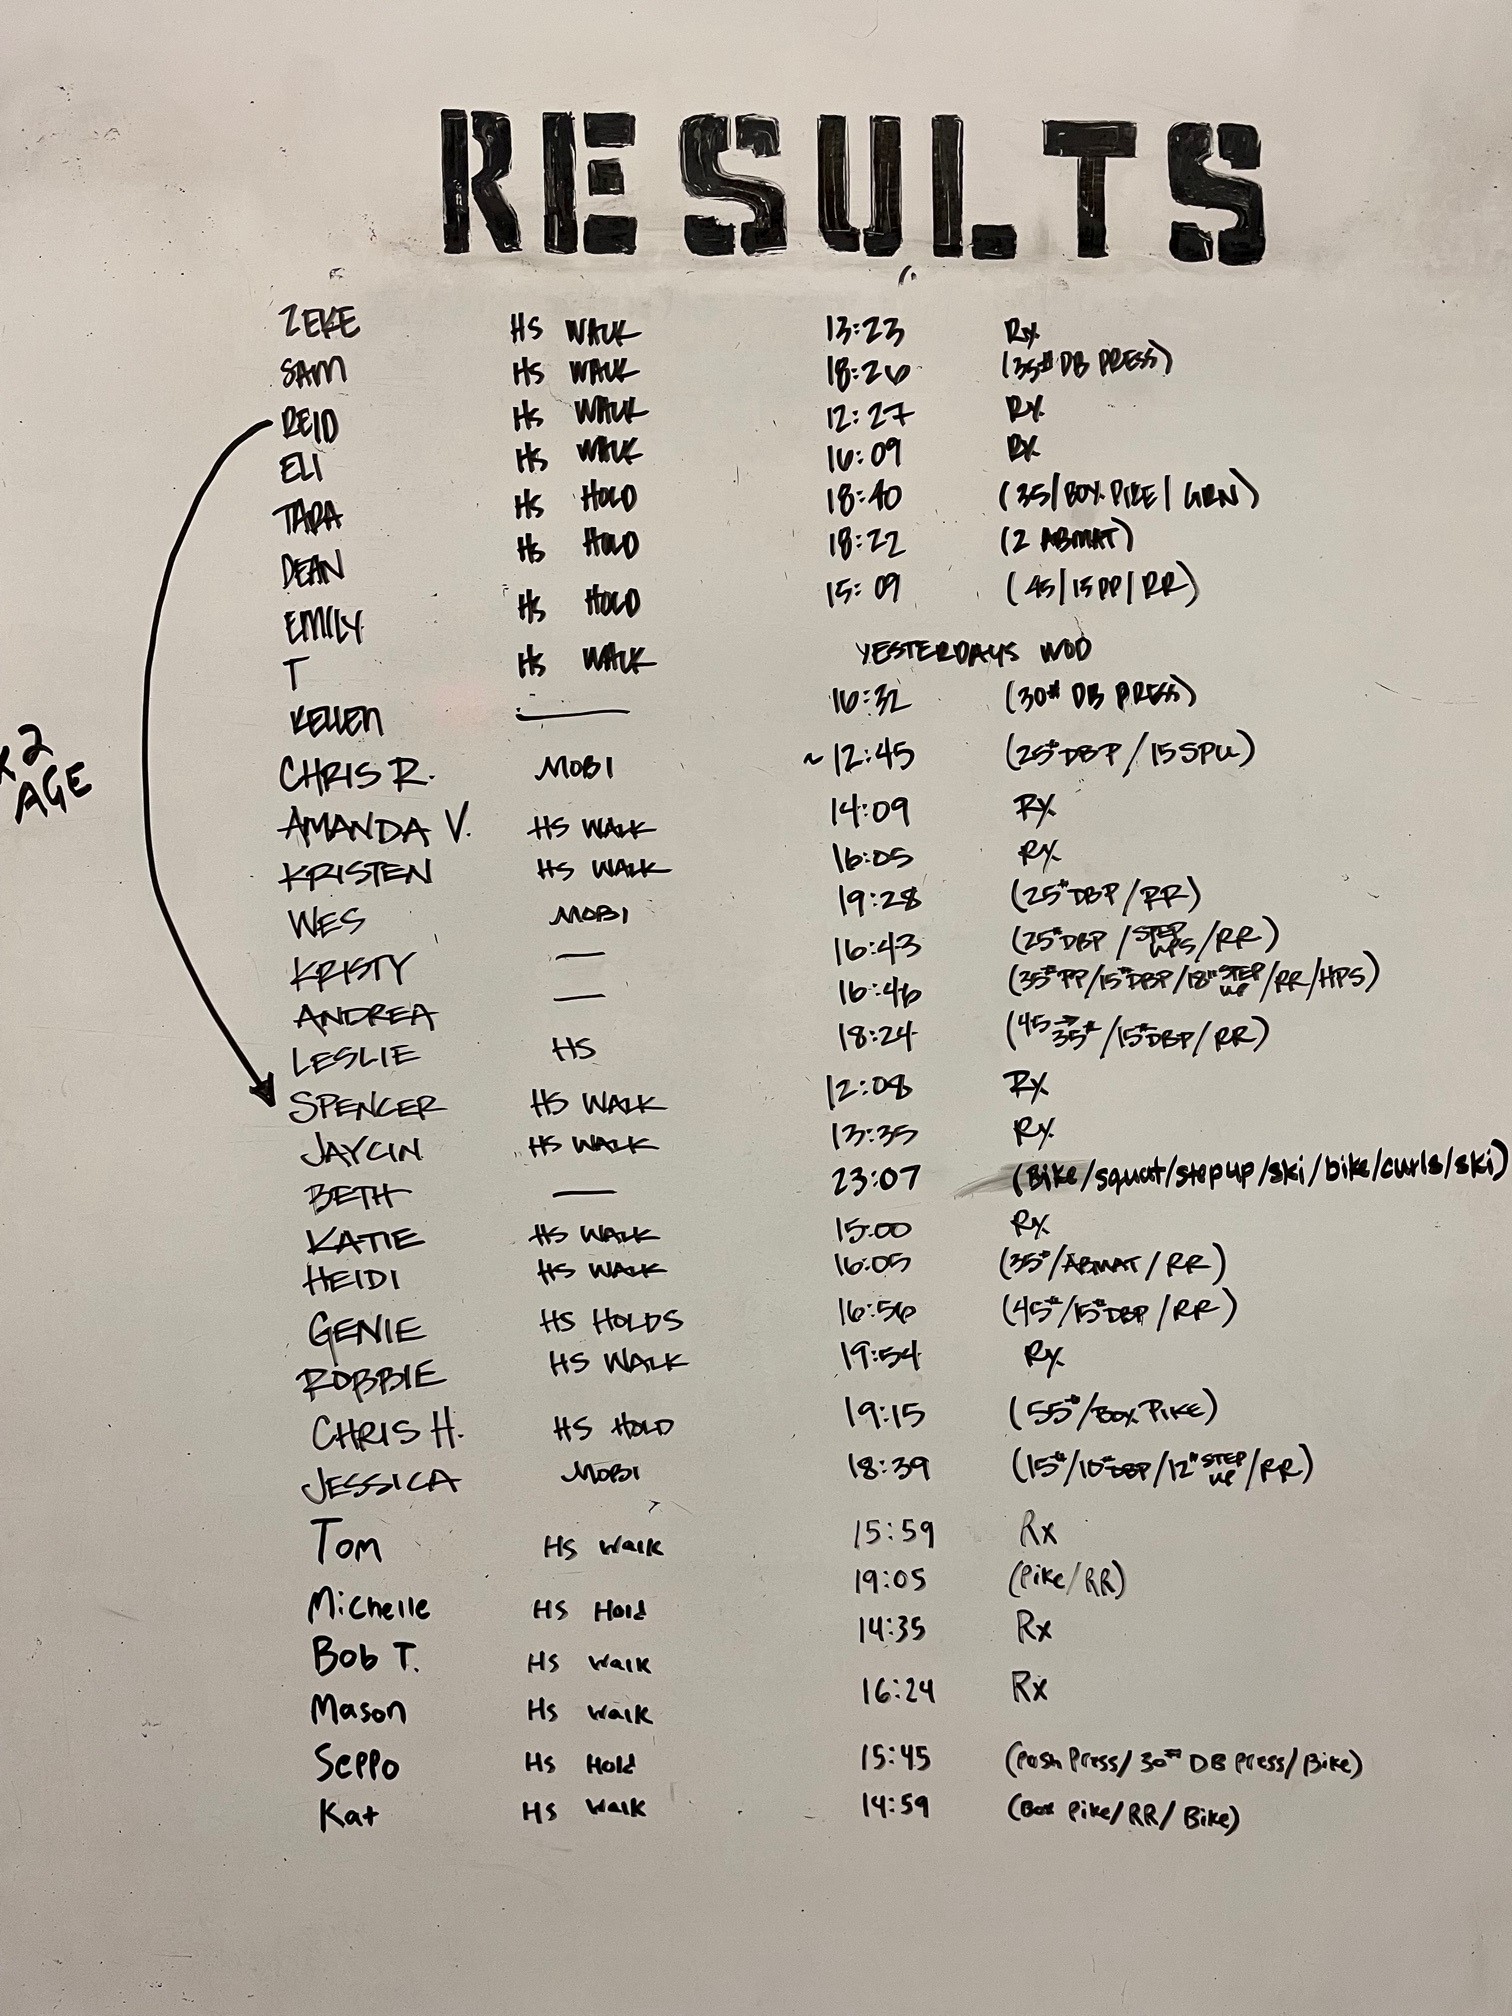 RESULTS
ZEKE HS WALK 13:23 Rx
SAM HS WALK 18:26 (35# DB PRESS)
REID HS WALK 12:27 Rx
ELI HS WALK 16:09 Rx
TARA HS HOLD 18:40 (35/BOX PIKE/GRN)
DEAN HS HOLD 18:22 (2 ABMAT)
EMILY HS HOLD 15:09 (45/15 PP/RR)
T HS WALK YESTERDAYS WOD
KELLEN — 16:32 (30# DB PRESS)
x2
AGE
CHRIS R. MOBI ~12:45 (25# DBP/15 SPU)
AMANDA V. HS WALK 14:09 Rx
KRISTEN HS WALK 16:05 Rx
WES MOBI 19:28 (25# DBP/RR)
KRISTY — 16:43 (25# DBP/STEP UPS/RR)
ANDREA — 16:46 (35# PP/15# DBP/18" STEP UP/RR/HPS)
LESLIE HS 18:24 (45→35#/15# DBP/RR)
SPENCER HS WALK 12:08 Rx
JAYCIN HS WALK 13:35 Rx
BETH — 23:07 (Bike/squat/step up/ski/bike/curls/ski)
KATIE HS WALK 15:00 Rx
HEIDI HS WALK 16:05 (35#/ABMAT/RR)
GENIE HS HOLDS 16:56 (45#/15# DBP/RR)
ROBBIE HS WALK 19:54 Rx
CHRIS H. HS HOLD 19:15 (55#/BOX PIKE)
JESSICA MOBI 18:39 (15#/10# DBP/12" STEP UP/RR)
Tom HS Walk 15:59 Rx
Michelle HS Hold 19:05 (Pike/RR)
Bob T. HS Walk 14:35 Rx
Mason HS Walk 16:24 Rx
Seppo HS Hold 15:45 (Push Press/30# DB Press/Bike)
Kat HS Walk 14:59 (Box Pike/RR/Bike)